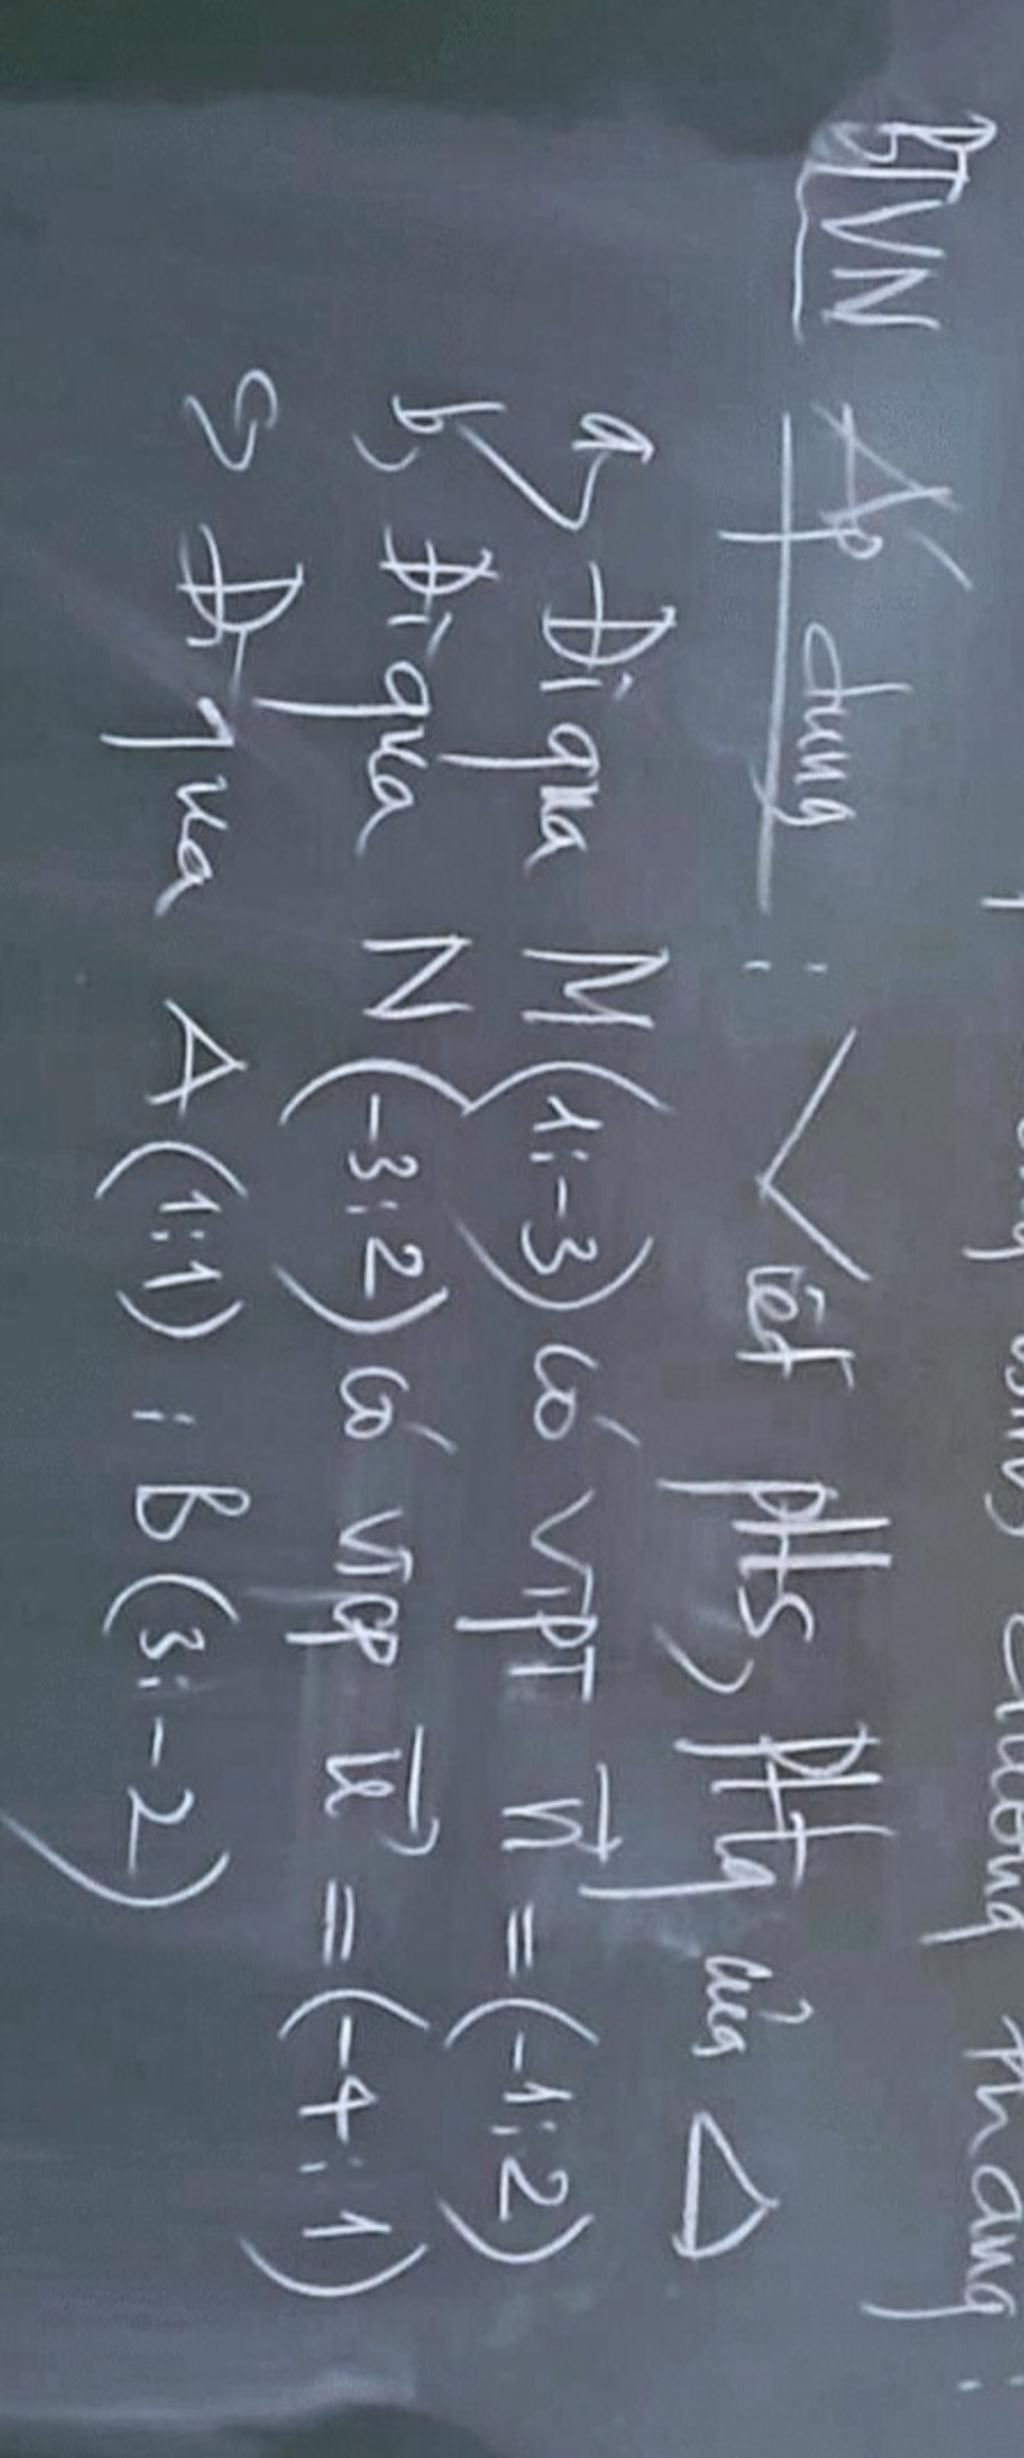 BTVN Áp dụng : Viết ptts, pttq của Δ
a, Đi qua M(1;-3) có VTPT n = (-1;2)
b, Đi qua N(-3;2) có VTCP u = (-4;1)
c, Đi qua A(1;1) ; B(3;-2)